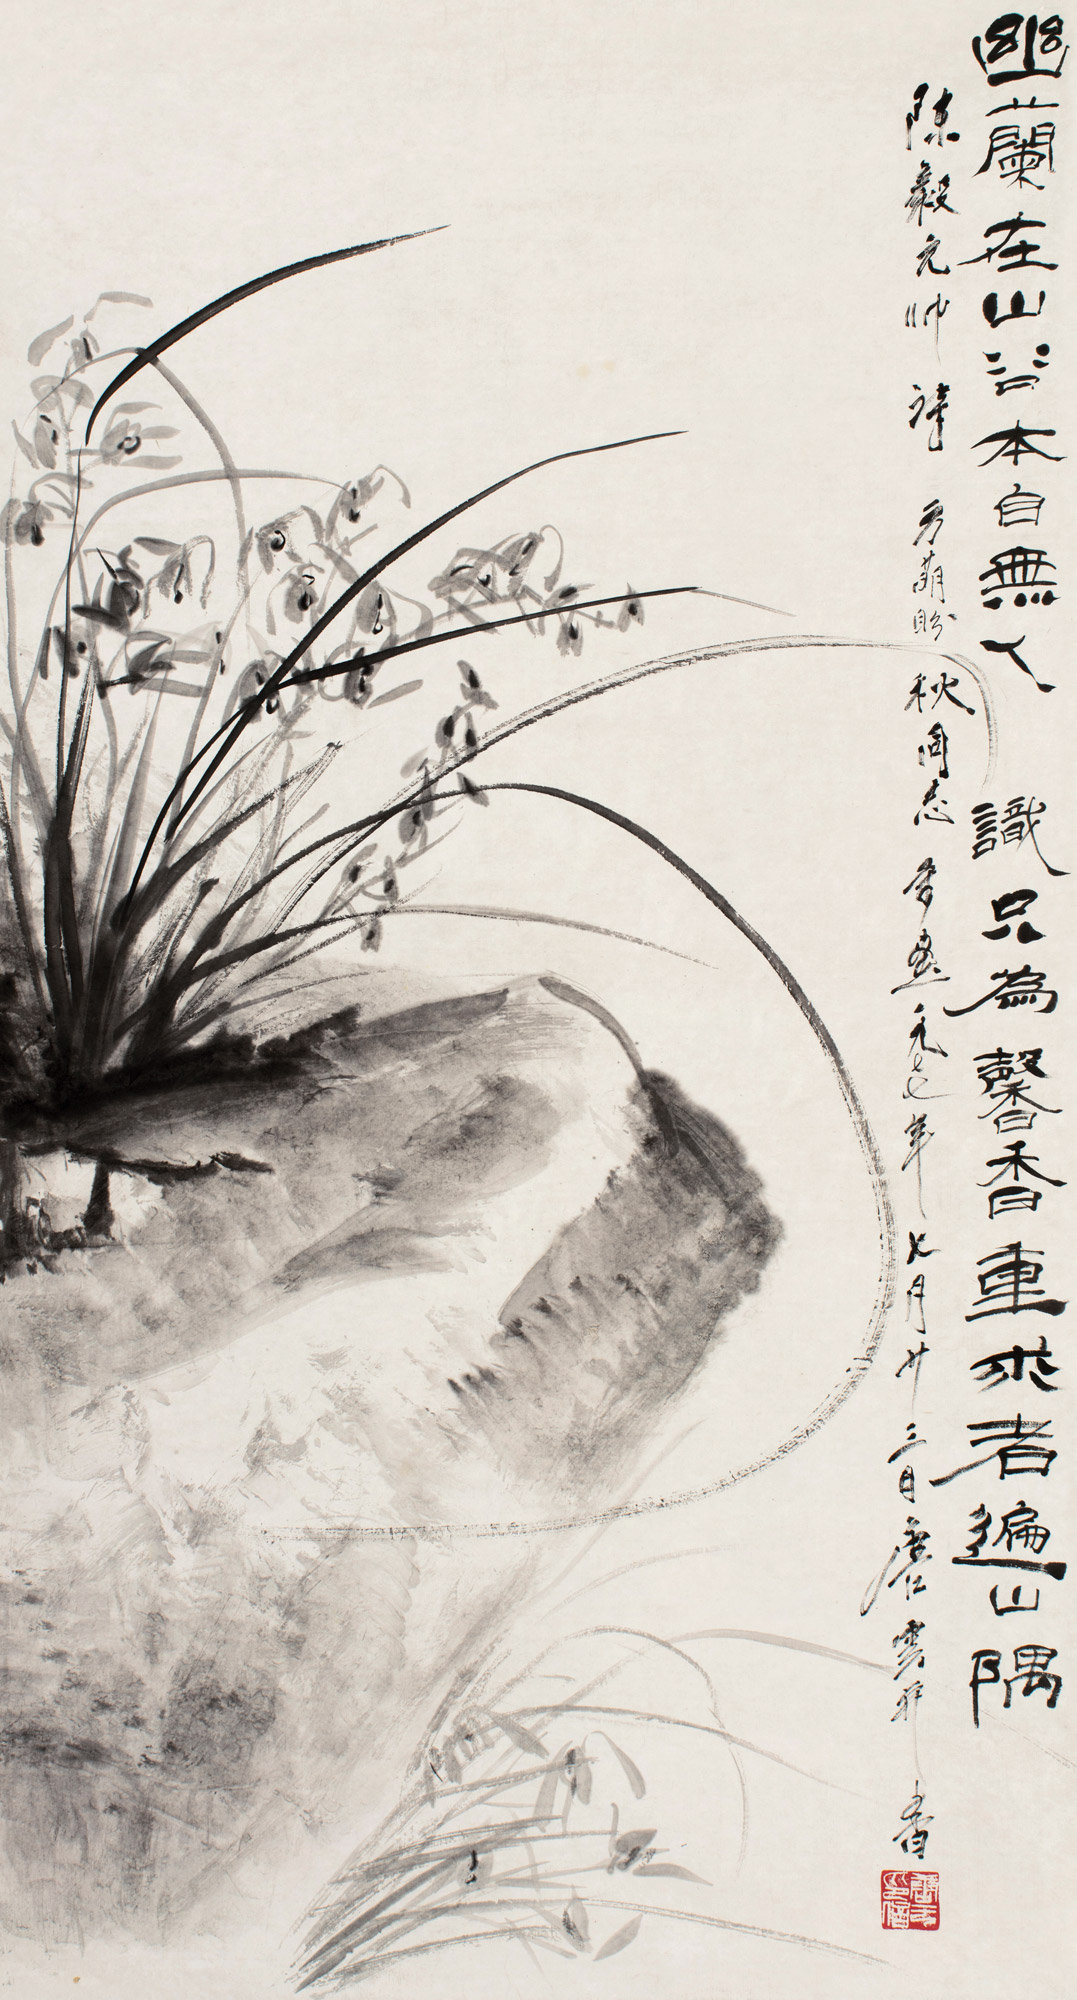 幽蘭在山谷本自無人識只為馨香重求者遍山隅
陳毅元帥詩 萌盼秋同志 畫 年七月廿三日唐雲并書